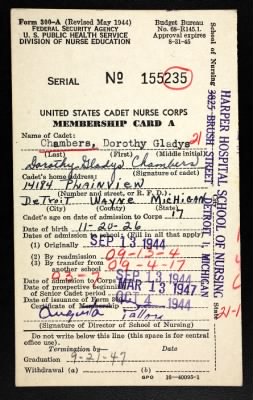 Form 300-A (Revised May 1944)
FEDERAL SECURITY AGENCY
U. S. PUBLIC HEALTH SERVICE
DIVISION OF NURSE EDUCATION
Budget Bureau
No. 68-R145.1.
Approval expires
8-31-45
SERIAL No 155235
UNITED STATES CADET NURSE CORPS
MEMBERSHIP CARD A
Name of Cadet:
Chambers, Dorothy Gladys 21
(Last) (First) (Middle initial)
Dorothy Gladys Chambers
Cadet's home address: (Signature of cadet)
14184 Plainview
(Number and street, or R. F. D.)
Detroit Wayne Michigan
(City) (County) (State)
Cadet's age on date of admission to Corps 17
Date of birth 11-20-26
Dates of admission to school: (Fill in all that apply)
(1) Originally SEP 13 1944
(2) By readmission 09-13-4
(3) By transfer from another school 09-4-17
Date of admission to Corps SEP 13 1944
Date of prospective beginning of Senior Cadet period MAR 13 1947
Date of issuance of Form
Certificate of Membership OCT 4 1944
Augusta
(Signature of Director of School of Nursing)
Do not write below this line, for office use only.
Termination by— Date
Graduation 9-21-47
Withdrawal (a) (b)
GPO 16-40095-1
School of Nursing
HARPER HOSPITAL SCHOOL OF NURSING
3825 BRUSH STREET
DETROIT 1, MICHIGAN
State
21-1